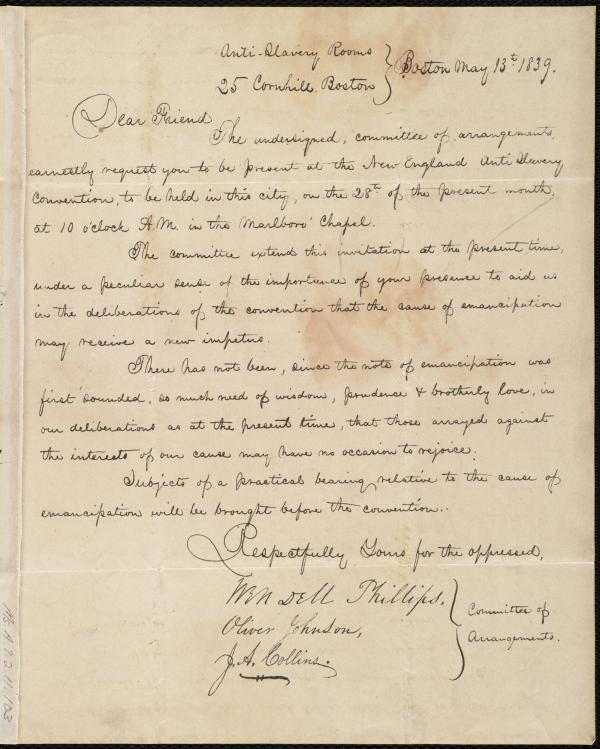 Anti-Slavery Rooms
25 Cornhill Boston
Boston May 13th 1839.
Dear Friend
The undersigned, committee of arrangements,
earnestly request you to be present at the New England Anti Slavery
Convention, to be held in this city, on the 28th of the present month,
at 10 o'clock A.M. in the Marlboro' Chapel.
The committee extend this invitation at the present time,
under a peculiar sense of the importance of your presence to aid us
in the deliberations of the convention that the cause of emancipation
may receive a new impetus.
There has not been, since the note of emancipation was
first sounded, so much need of wisdom, prudence & brotherly love, in
our deliberations as at the present time, that those arrayed against
the interests of our cause may have no occasion to rejoice.
Subjects of a practical bearing relative to the cause of
emancipation will be brought before the convention.
Respectfully Yours for the oppressed,
Wendell Phillips,
Oliver Johnson,
J. A. Collins.
Committee of
Arrangements.